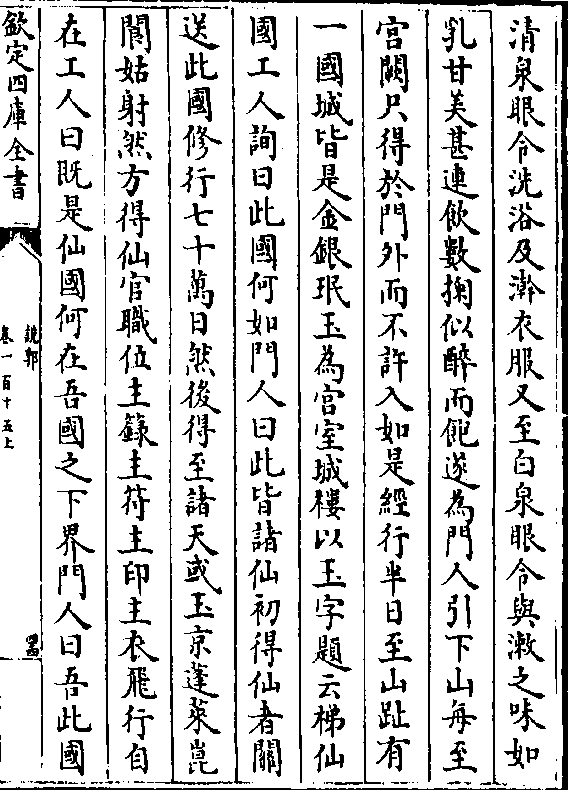 清泉眼令洗浴及澣衣服又至白泉眼令與漱之味如
乳甘美甚連飲數掬似醉而飽遂為門人引下山每至
宮闕只得於門外而不許入如是經行半日至山趾有
一國城皆是金銀珉玉為宮室城樓以玉字題云梯仙
國工人詢曰此國何如門人曰此皆諸仙初得仙者關
送此國修行七十萬日然後得至諸天或玉京蓬萊崑
閬姑射然方得仙官職位主籙主符主印主衣飛行自
在工人曰既是仙國何在吾國之下界門人曰吾此國
欽定四庫全書
說郛
卷一百十五上